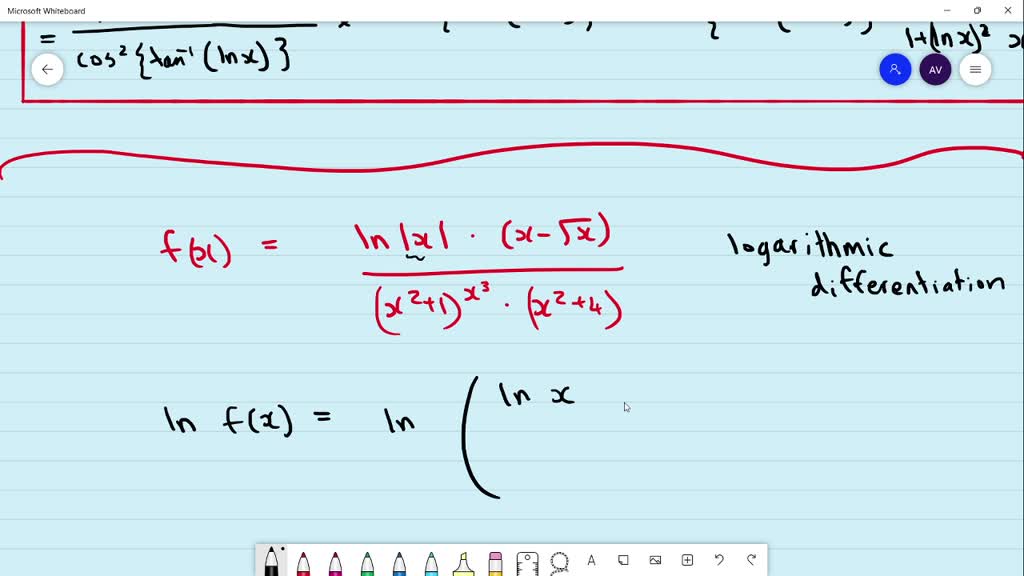 Microsoft Whiteboard
= cos² {tan⁻¹ (ln x)}
1+(ln x)²
AV
f(x) = ln |x| · (x − √x)
(x²+1)^x³ · (x²+4)
logarithmic
differentiation
ln f(x) = ln ( ln x
A